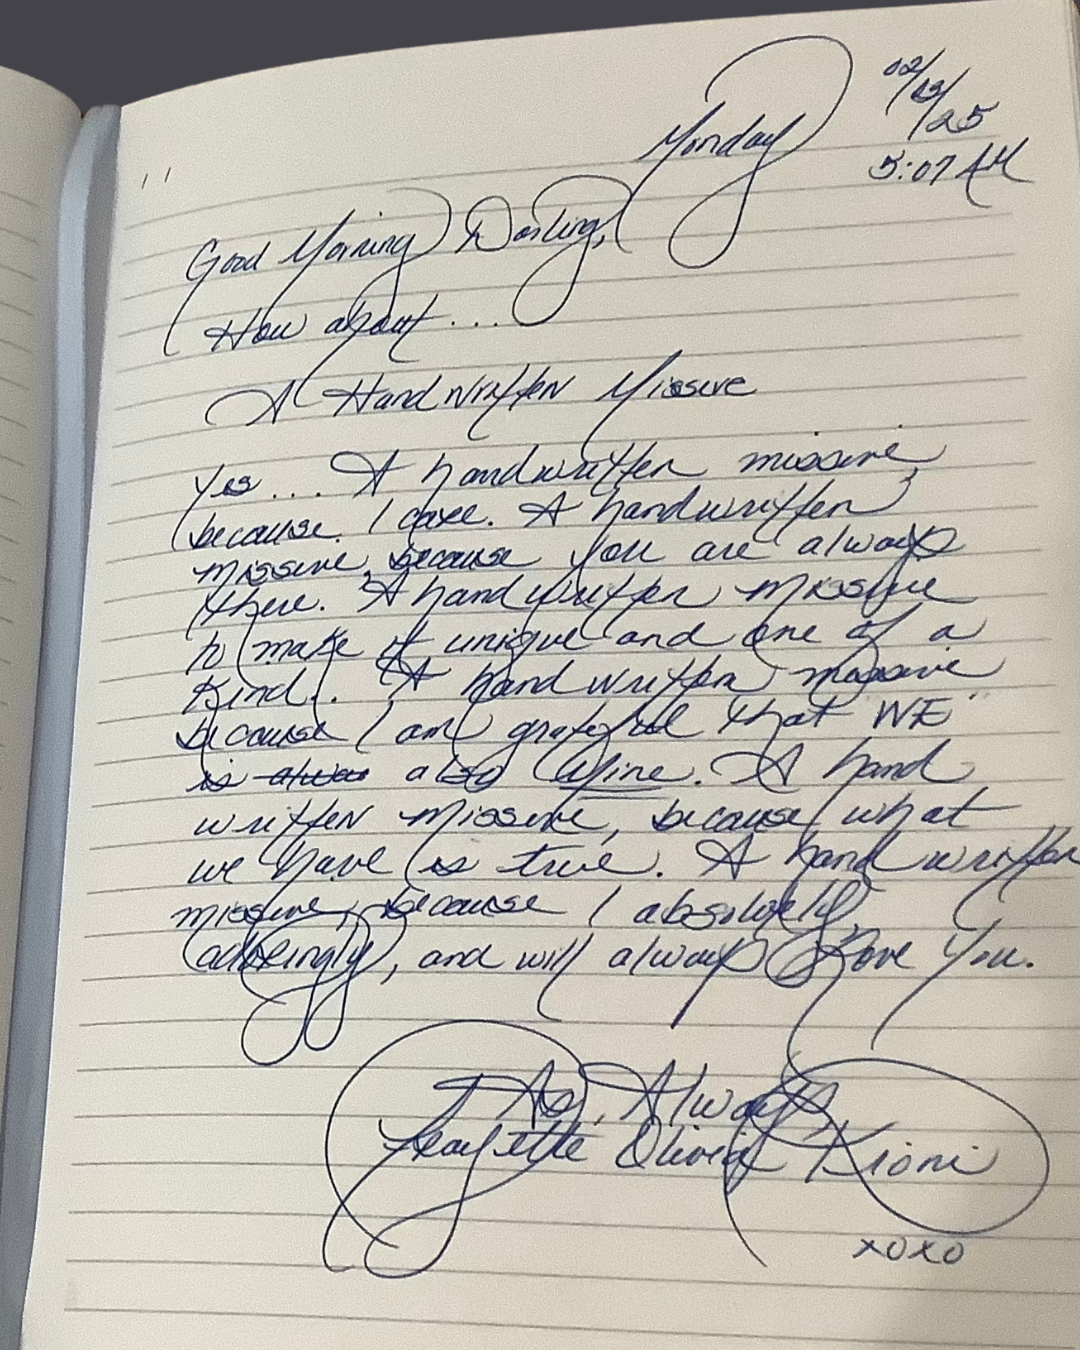 Monday
02/
/25
5:07 AM
Good Morning Darling,
How about...
A Handwritten Missive
Yes... A handwritten missive,
because I care. A handwritten
missive, because you are always
there. A handwritten missive
to make it unique and one of a
kind.. A handwritten missive
because I am grateful that WE
is also Mine. A hand
written missive, because what
we have is true. A hand written
missive, because I absolutely,
adoringly, and will always Love You.
As, Always,
Olivia Kioni
xoxo